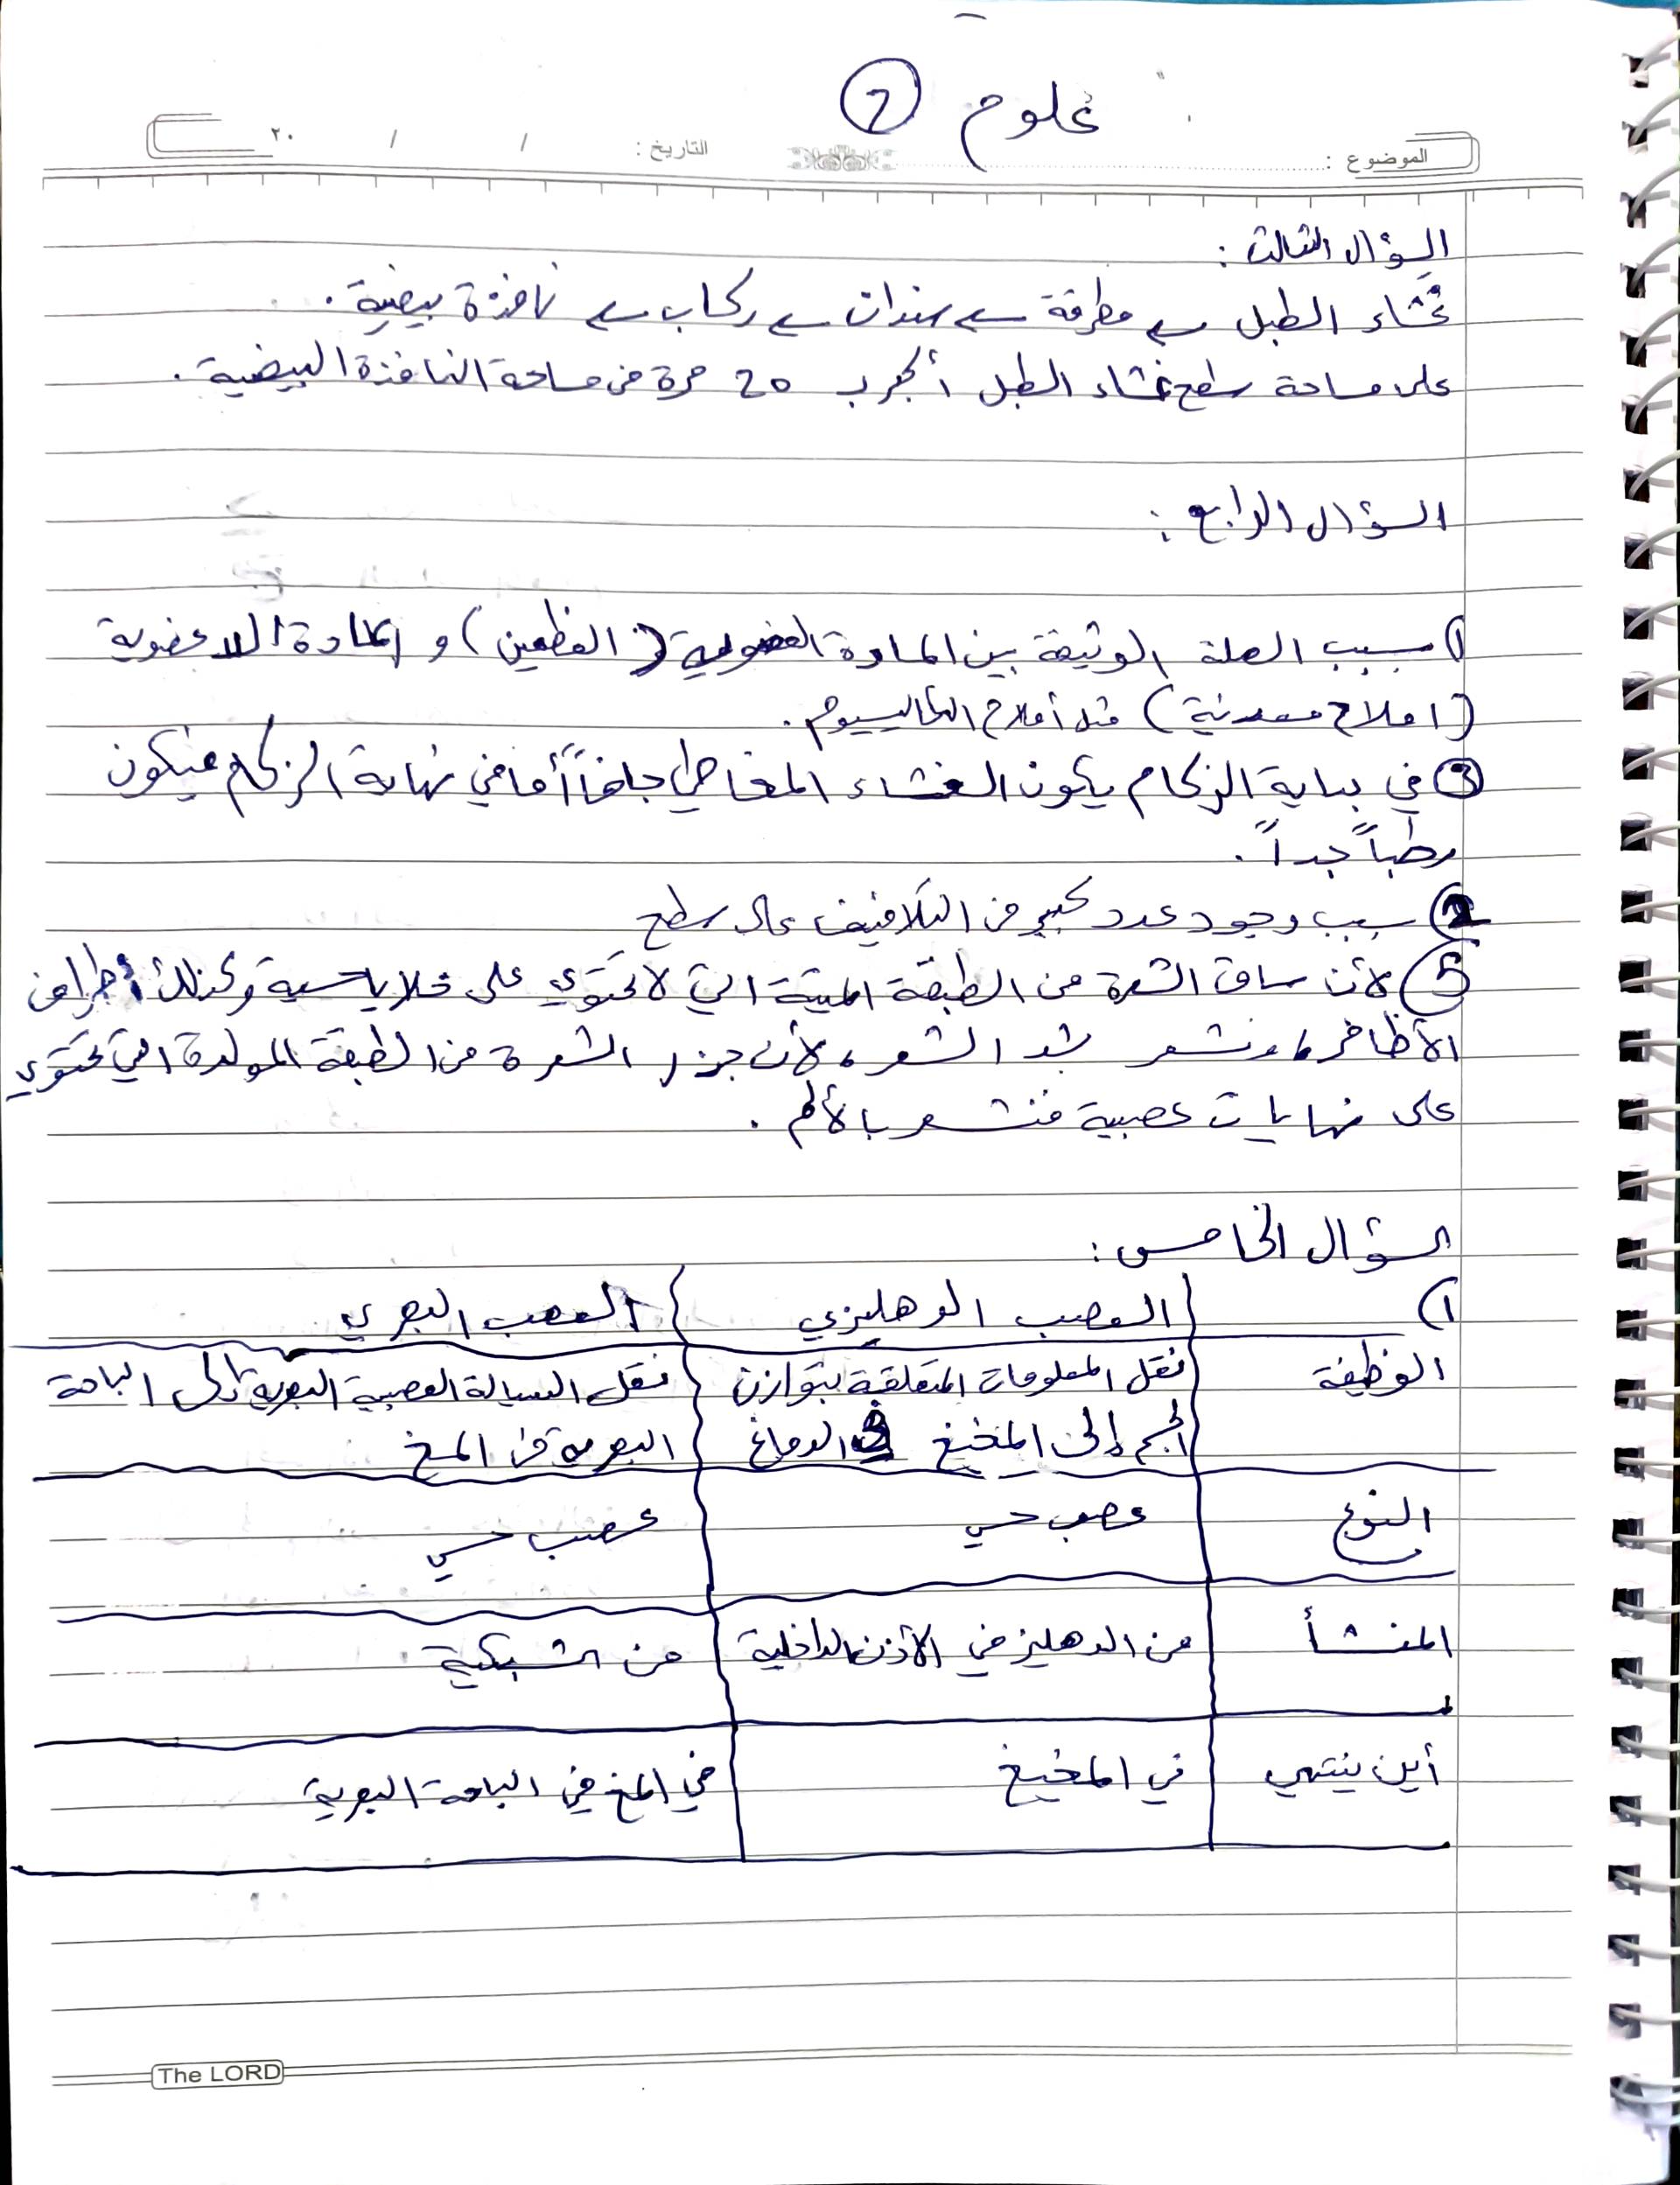 علوم ②
الموضوع : التاريخ : / / ٢٠
السؤال الثالث :
غشاء الطبل ← مطرقة ← سندان ← ركاب ← نافذة بيضية .
على مساحة سطح غشاء الطبل أكبر ب 20 مرة من مساحة النافذة البيضية .
السؤال الرابع :
1) بسبب الصلة الوثيقة بين المادة العضوية (العظمين) و المادة اللاعضوية
(املاح معدنية) مثل أملاح الكالسيوم .
③ في بداية الزكام يكون الغشاء المخاطي جافاً أما في نهاية الزكام فيكون
رطباً جداً .
② بسبب وجود عدد كبير من التلافيف على سطح
5) لأن ساق الشعرة من الطبقة الميتة التي لا تحتوي على خلايا حسية وكذلك أطراف
الأظافر، ونشعر بشد الشعر لأن جذر الشعرة من الطبقة المولدة التي تحتوي
على نهايات عصبية فنشعر بالألم .
السؤال الخامس :
1) العصب الدهليزي العصب البصري
الوظيفة نقل المعلومات المتعلقة بتوازن نقل السيالة العصبية البصرية إلى الباحة
الجسم إلى المخيخ الدماغ البصرية في المخ
النوع عصب حسي عصب حسي
المنشأ من الدهليز في الأذن الداخلية من الشبكية
أين ينتهي في المخيخ في المخ في الباحة البصرية
The LORD